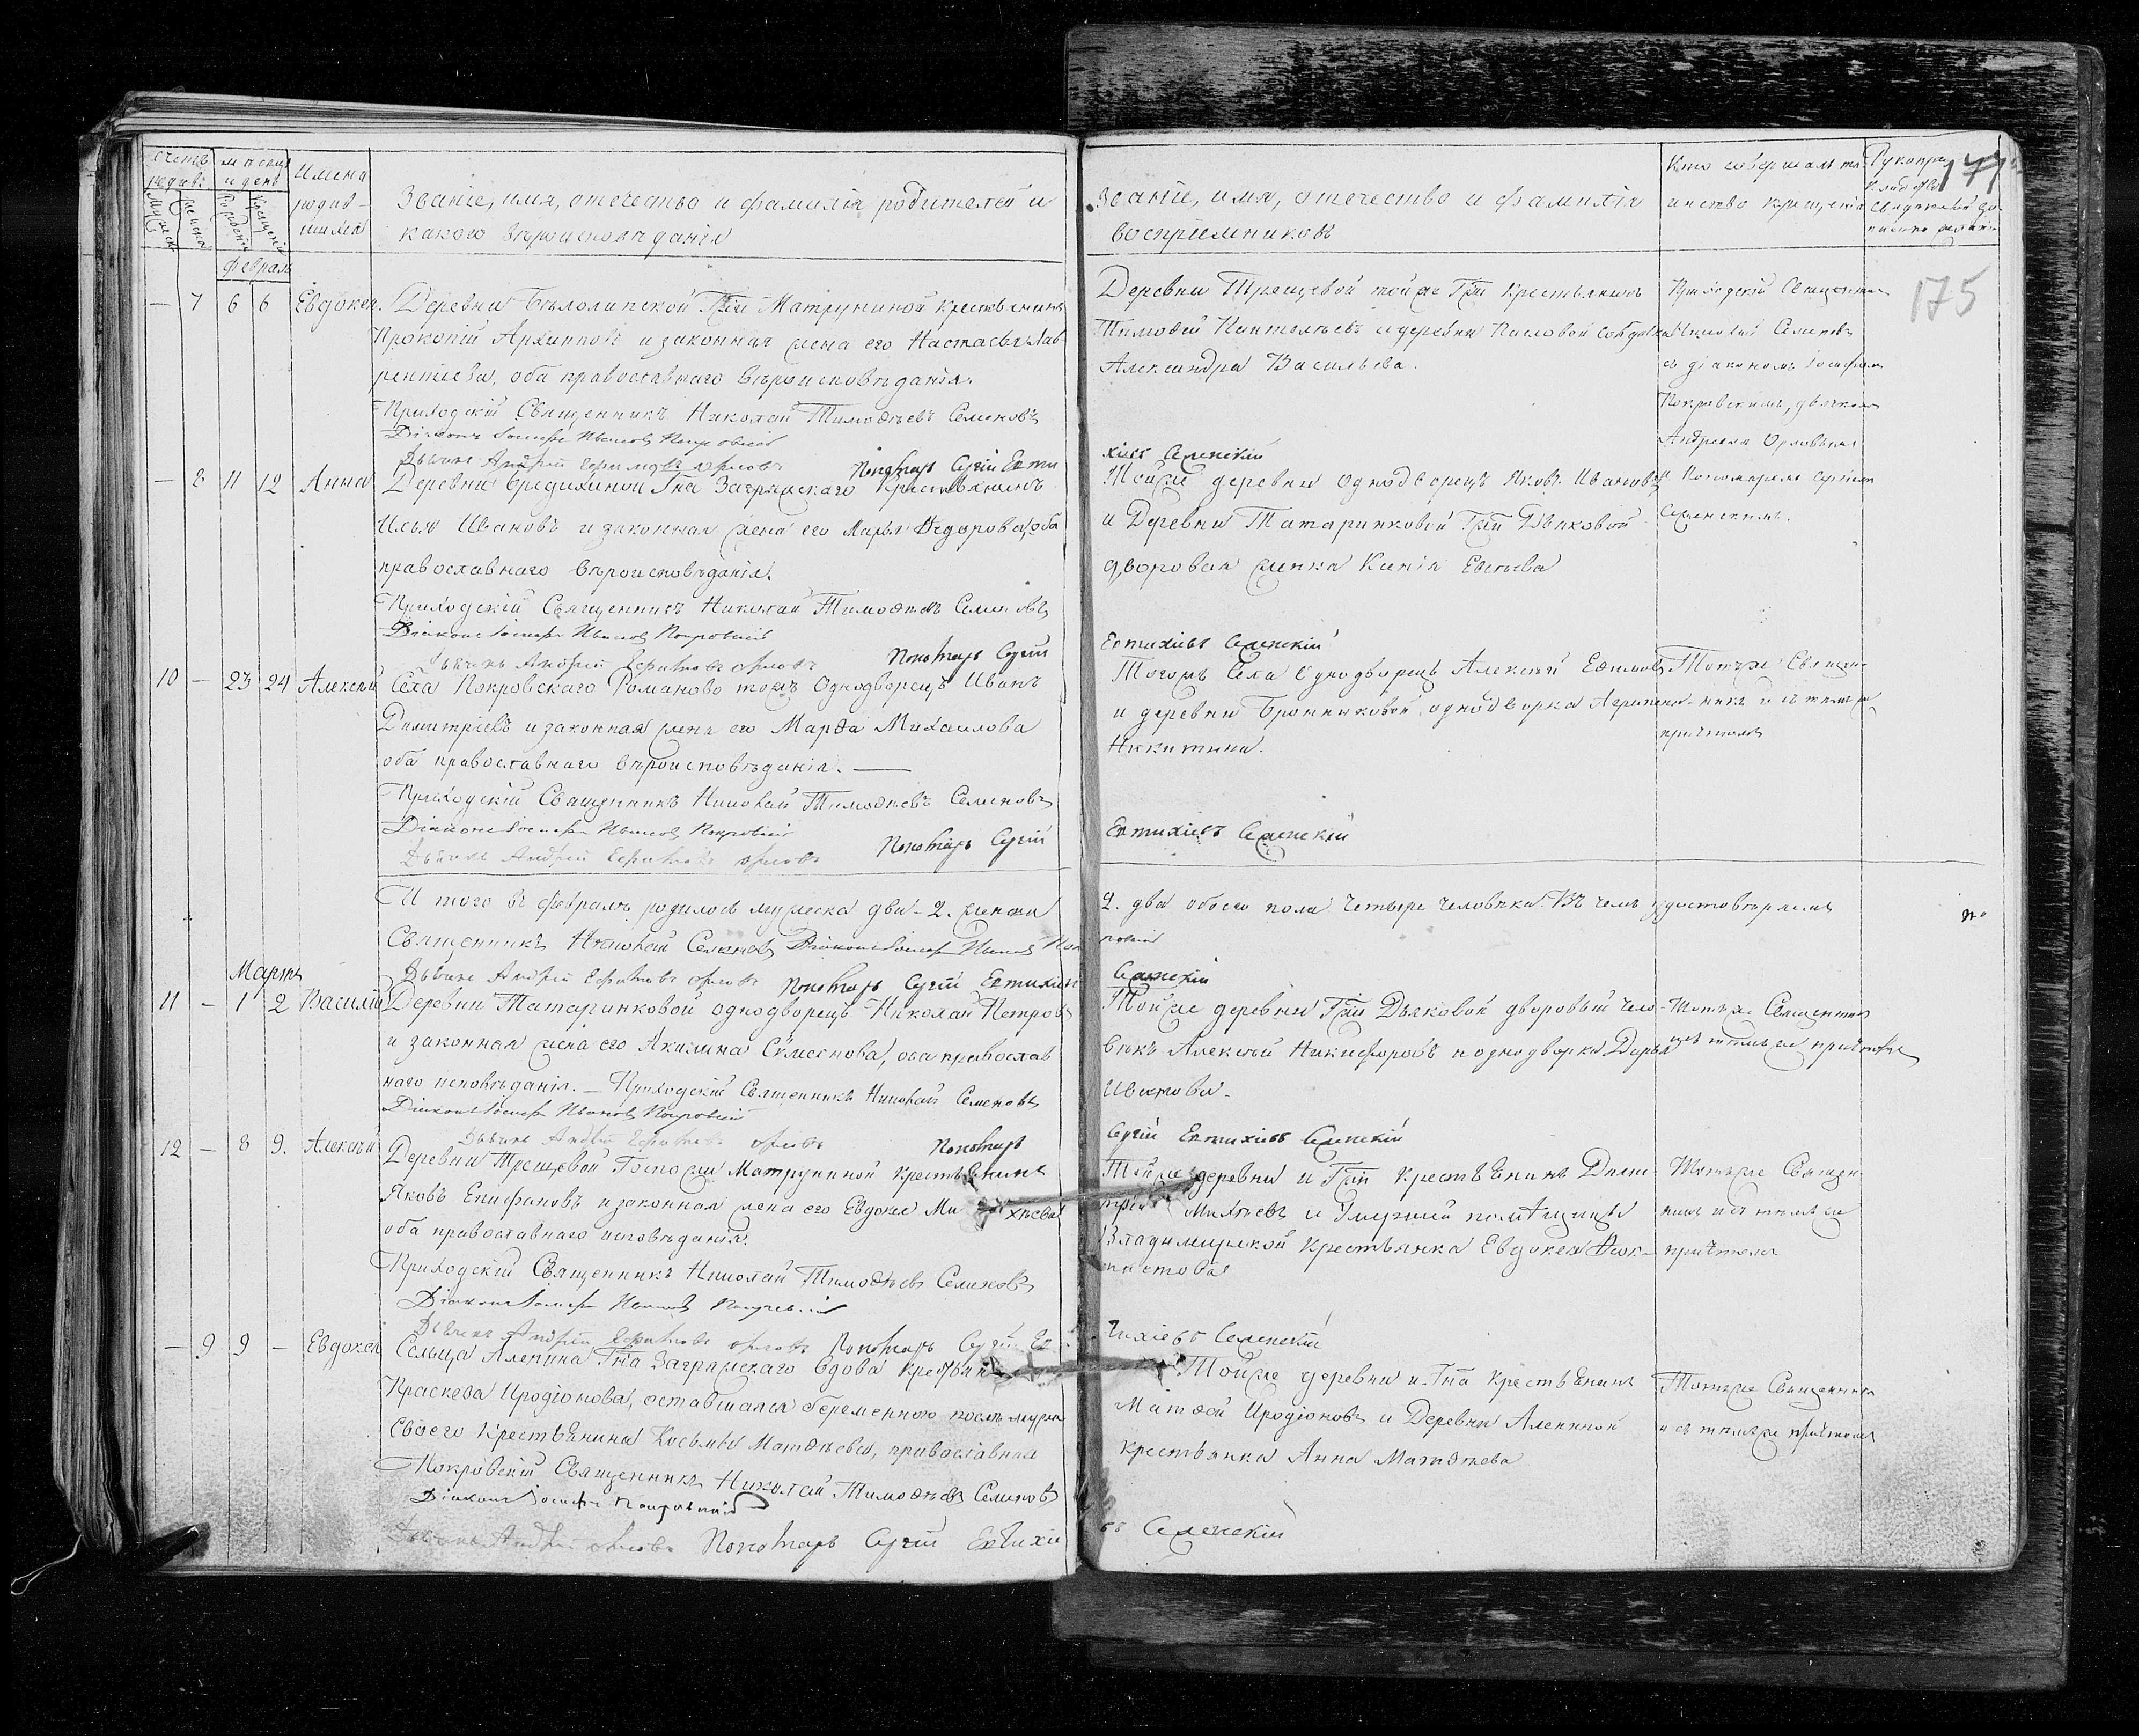 счетъ родив:
мѣсяцъ и день
Имена родив-
шихся
Званіе, имя, отечество и фамилія родителей и
какого вѣроисповѣданія
Мужеска
Женска
Рожденія
Крещенія
Февраль
— 7 6 6 Евдокея. Деревни Бѣлолипской Гжи Матруниной крестьянинъ
Прокопій Архиповъ и законная жена его Настасья Лав-
рентіева, оба православнаго вѣроисповѣданія.
Приходскій Священникъ Николай Тимоѳѣевъ Семеновъ
Діаконъ Іосифъ Ивановъ Покровскій
Дьячекъ Андрей Орловъ Пономарь Сергій Евти
— 8 11 12 Анна Деревни Бредихиной Гна Загряжскаго Крестьянинъ
Илья Ивановъ и законная жена его Марья Ѳедорова, оба
православнаго вѣроисповѣданія.
Приходскій Священникъ Николай Тимоѳѣевъ Семеновъ
Діаконъ Іосифъ Ивановъ Покровскій
Дьячекъ Андрей Орловъ Пономарь Сергій
10 — 23 24 Алексѣй Села Покровскаго Романово тожъ Однодворецъ Иванъ
Димитріевъ и законная жена его Марѳа Михайлова
оба православнаго вѣроисповѣданія. —
Приходскій Священникъ Николай Тимоѳѣевъ Семеновъ
Діаконъ Іосифъ Ивановъ Покровскій
Дьячекъ Андрей Орловъ Пономарь Сергій
И того въ февралѣ родилось мужеска два - 2. женска
Священникъ Николай Семеновъ Діаконъ Іосифъ Ивановъ Пок
Дьячекъ Андрей Орловъ Пономарь Сергій Евтихіев
Мартъ
11 — 1 2 Василій Деревни Татаринковой однодворецъ Николай Петровъ
и законная жена его Акилина Семенова, оба православ
наго исповѣданія. — Приходскій Священникъ Николай Семеновъ
Діаконъ Іосифъ Ивановъ Покровскій
Дьячекъ Андрей Орловъ Пономарь
12 — 8 9. Алексѣй Деревни Трещевой Госпожи Матруниной Крестьянинъ
Яковъ Епифановъ и законная жена его Евдокея Ми хѣева
оба православнаго исповѣданія.
Приходскій Священникъ Николай Тимоѳѣевъ Семеновъ
Діаконъ Іосифъ Ивановъ Покровскій
Дьячекъ Андрей Орловъ Пономарь Сергій Ев
— 9 9 — Евдокея Сельца Аленина Гна Загряжскаго вдова крестьян
Праскева Иродіонова, оставшаяся беременною послѣ мужа
своего Крестьянина Косьмы Матѳѣева, православная
Покровскій Священникъ Николай Тимоѳѣевъ Семеновъ
Діаконъ Іосифъ Покровскій
Дьячекъ Андрей Орловъ Пономарь Сергій Евтихіе
Званіе, имя, отечество и фамилія
воспріемниковъ
Кто совершалъ та
инство крещенія
Рукопри
кладство
свидѣтелей
177
175
Деревни Трещевой тойже Гжи Крестьянинъ
Тимоѳей Пантелѣевъ и деревни
Александра Васильева.
Приходскій Священникъ
Николай Семеновъ
съ діакономъ Іосифомъ
Покровскимъ, дьячкомъ
Андреемъ Орловымъ
и Пономаремъ Сергіемъ
хіевъ
Тойже деревни Однодворецъ Яковъ Ивановъ
и Деревни Татаринковой Гжи Дьяковой
дворовая женка Ксенія Евсѣева
Евтихіевъ
Тогожъ Села Однодворецъ Алексѣй
и деревни однодворка Агрипена
Никитина.
Тотъже Священ-
никъ и съ тѣмъ же
причтомъ
Евтихіевъ
2. два обоего пола четыре человѣка. Въ чемъ удостовѣряемъ
ровскій
Тойже деревни Гжи Дьяковой дворовый чело-
вѣкъ Алексѣй Никифоровъ и однодворка Дарья
Иванова.
Тотъже Священникъ
и съ тѣмъ же причтомъ
Сергій Евтихіевъ
Тойже деревни и Гжи Крестьянинъ Дими-
трій Михѣевъ и помѣщицы
Владимирской Крестьянка Евдокея Ѳеок-
тистова
Тотъже Священ-
никъ и съ тѣмъ же
причтомъ
тихіевъ
Тойже деревни и Гна Крестьянинъ
Матѳей Иродіоновъ и Деревни Алениной
крестьянка Анна Матѳѣева
Тотъже Священникъ
и съ тѣмъ же причтомъ
въ